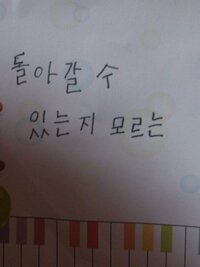 돌아갈 수
있는지 모르는